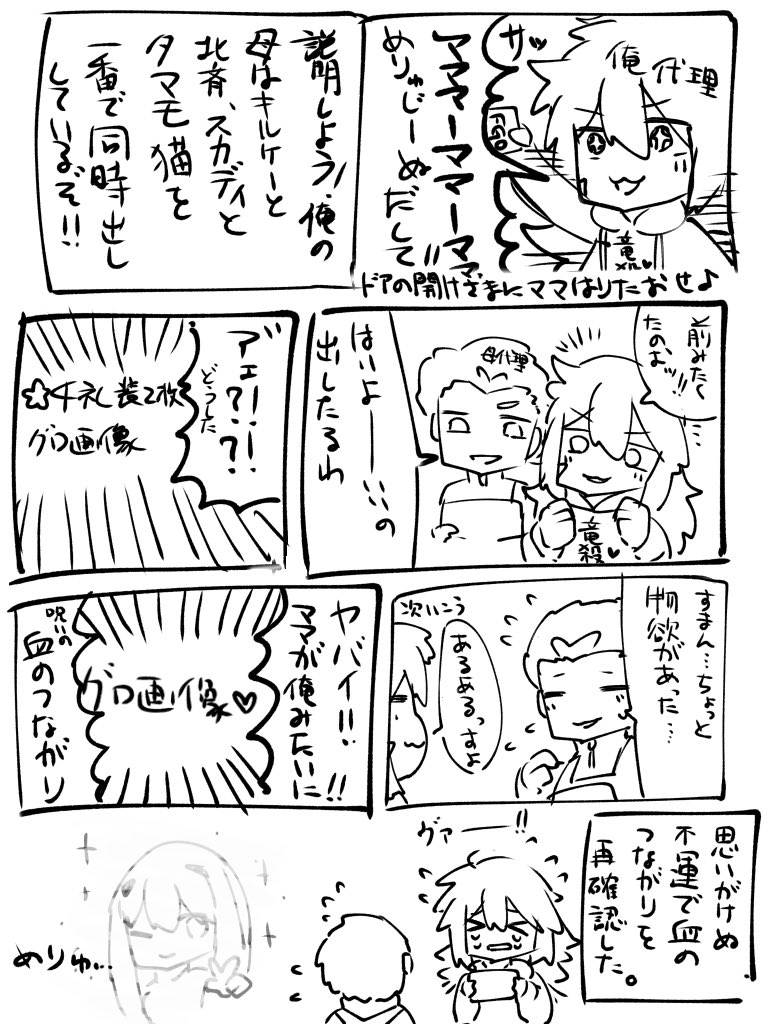 俺代理
サッ
FGO
ママママーママーママ
めりゅじーぬだして!!
竜
メル♥
ドアの開けざまにママはりたおせ♪
説明しよう!俺の
母はキルケーと
北斉、スカディと
タマモ猫を
一番で同時出し
しているぞ!!
前みたく
たのむッ!!
…
母代理
竜殺♥
はいよーいの
出したるわ
ア゛ェ!?!?
どうした
☆4礼装2枚
グロ画像
すまん…ちょっと
物欲があった…
あるあるっすよ
次いこう
ヤバイ!!
ママが俺みたいに!!
グロ画像♥
呪いの
血のつながり
思いがけぬ
不運で血の
つながりを
再確認した。
ヴァー!!
めりゅ…